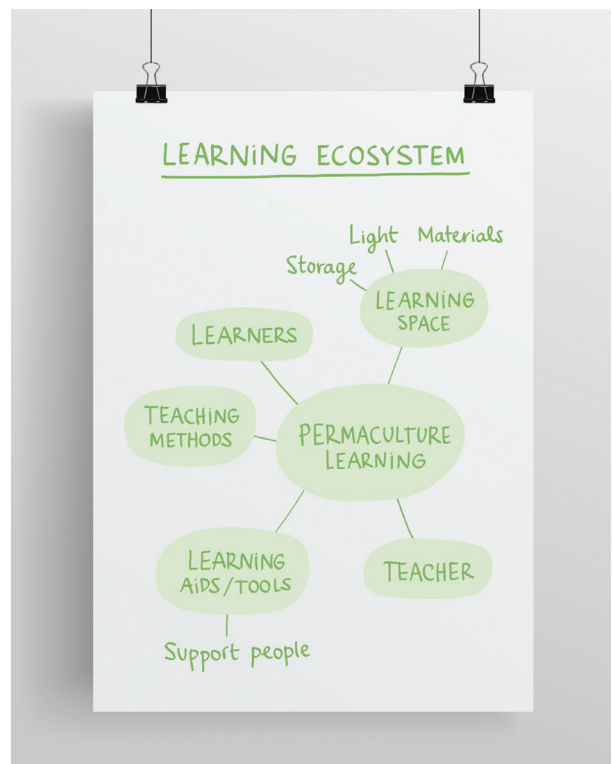 LEARNING ECOSYSTEM
Light
Materials
Storage
LEARNING
SPACE
LEARNERS
TEACHING
METHODS
PERMACULTURE
LEARNING
LEARNING
AIDS/TOOLS
TEACHER
Support people